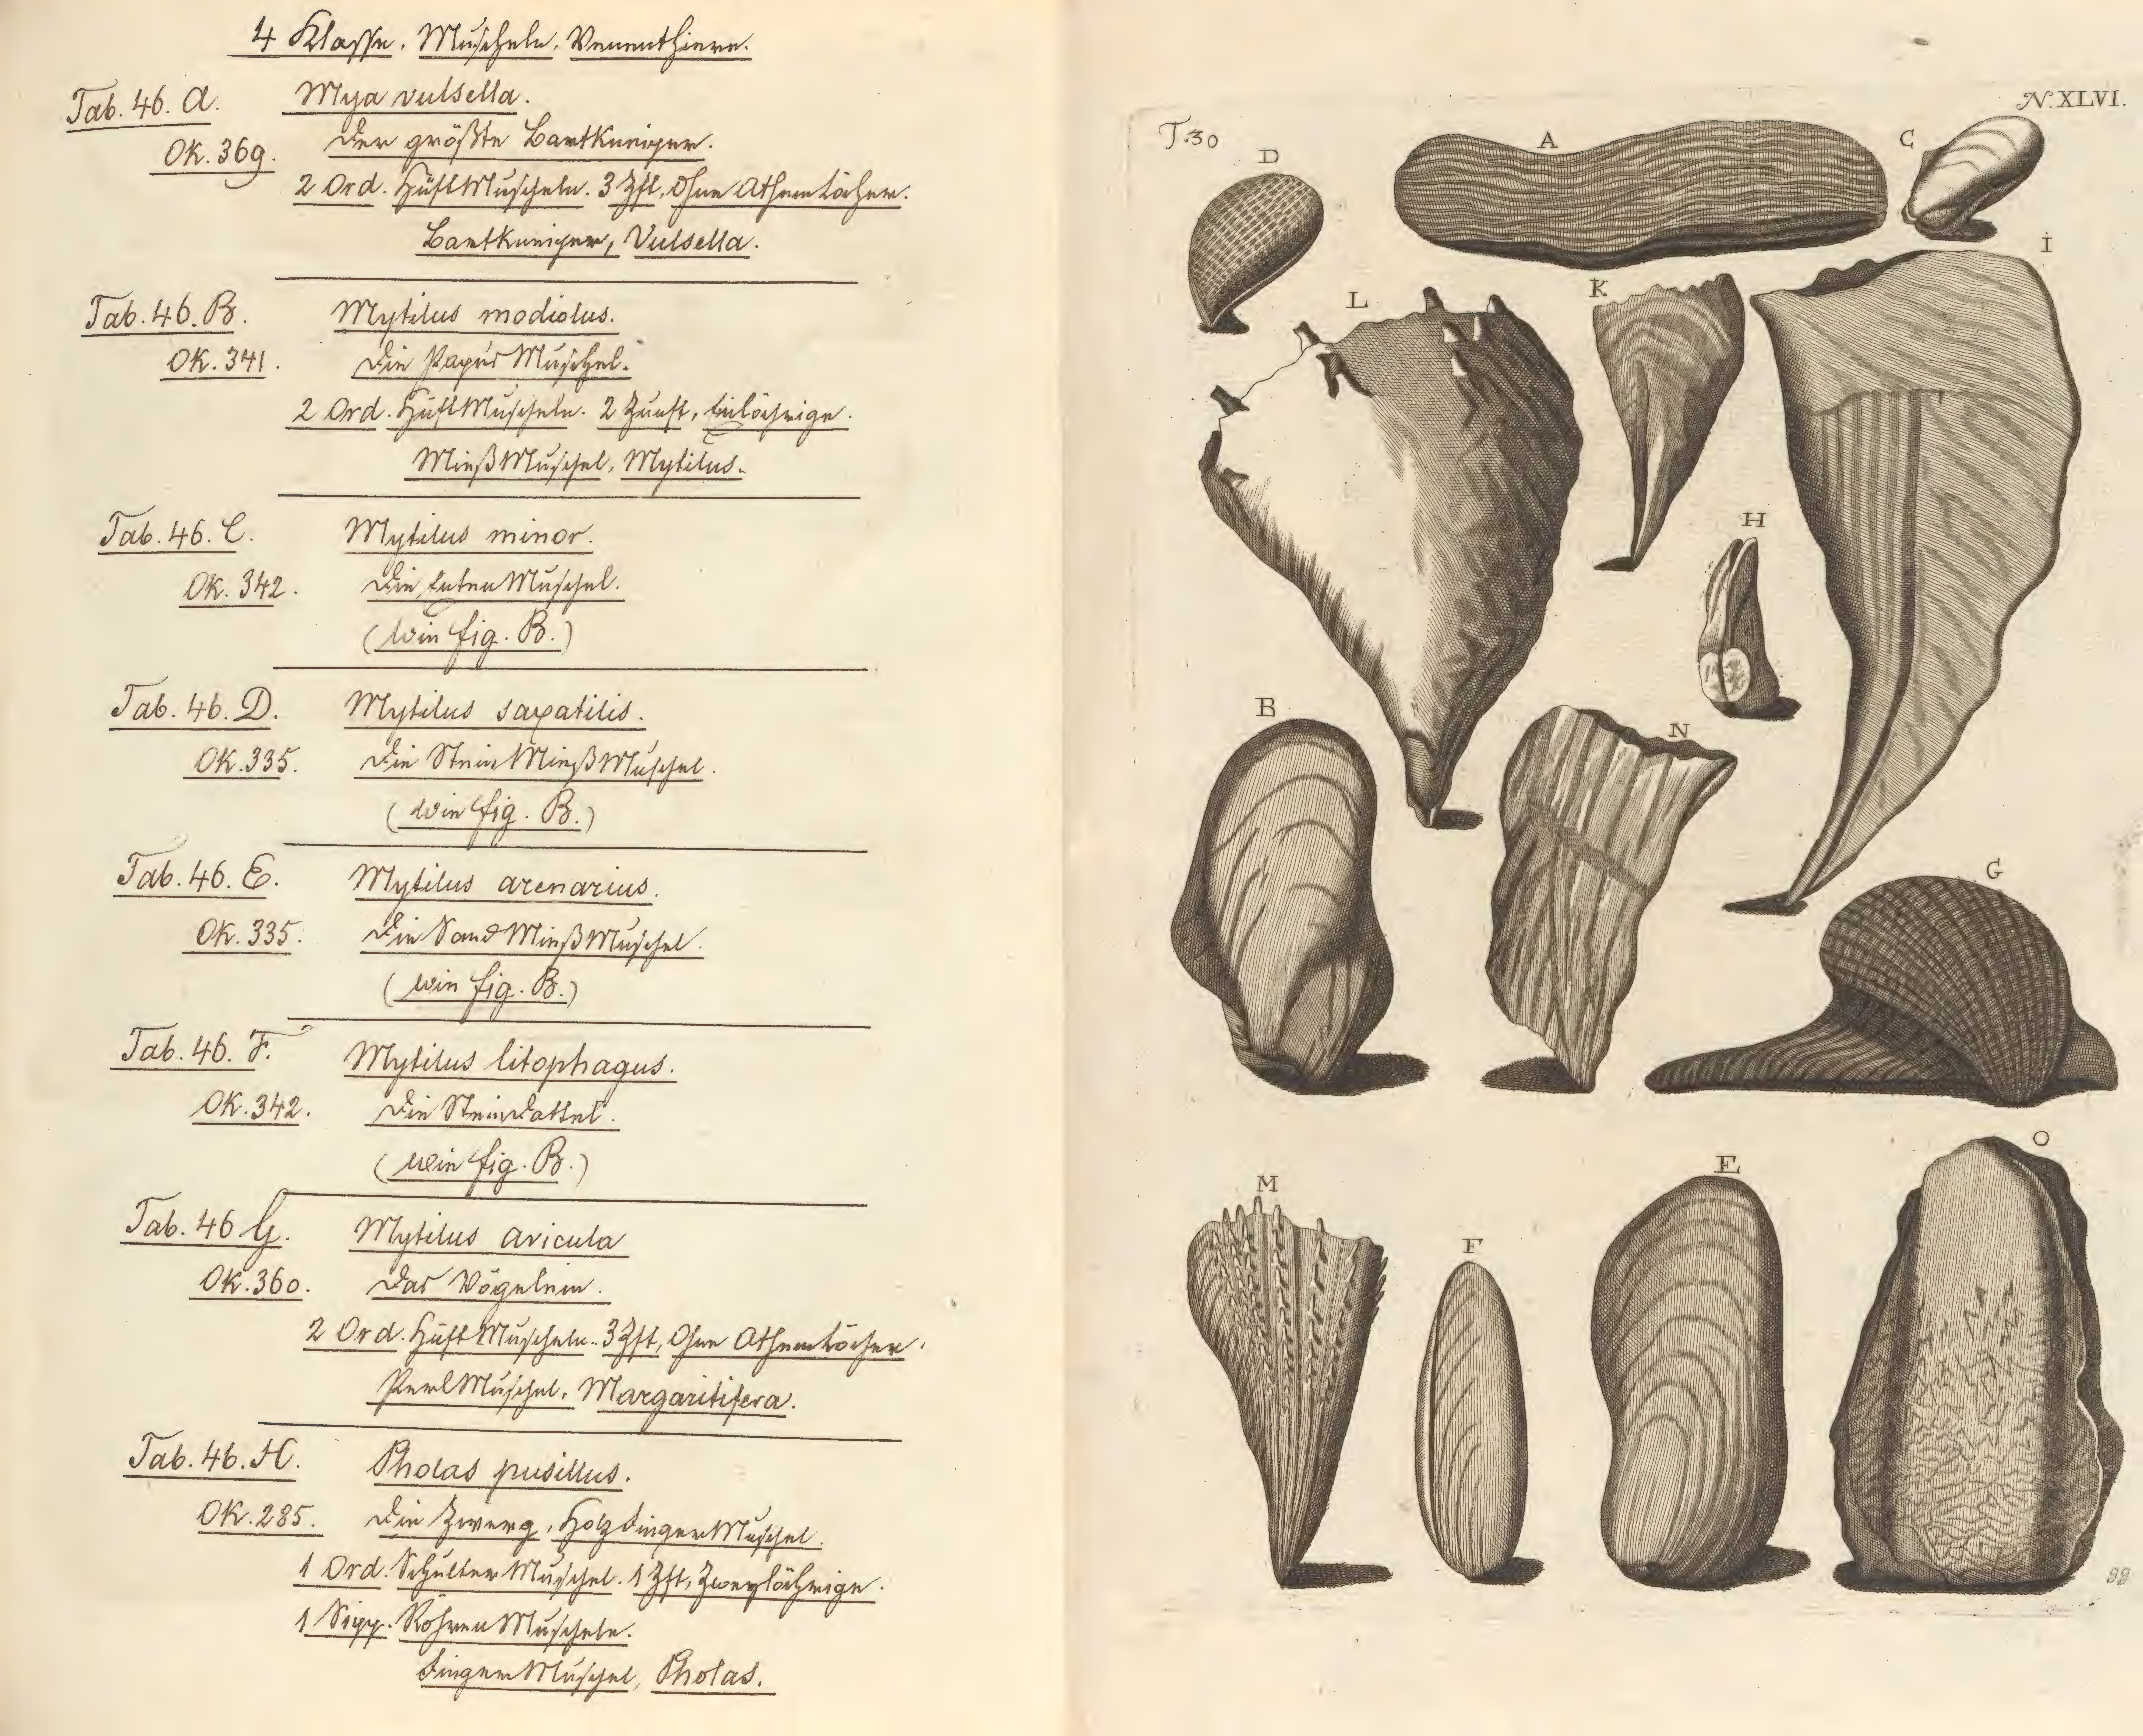 4 Klasse. Muscheln. Venenthiere.
Tab. 46. A. Mya vulsella.
Ok. 369. Der größte Bartkneiper.
2 Ord. HüftMuscheln. 3 Zft, Ohne Athemlöcher.
Bartkneiper, Vulsella.
Tab. 46. B. Mytilus modiolus.
Ok. 341. Die PapusMuschel.
2 Ord. HüftMuscheln. 2 Zunft, Einlöchrige.
MießMuschel, Mytilus.
Tab. 46. C. Mytilus minor.
Ok. 342. Die EntenMuschel.
(wie fig. B.)
Tab. 46. D. Mytilus saxatilis.
Ok. 335. Die SteinMießMuschel.
(wie fig. B.)
Tab. 46. E. Mytilus arenarius.
Ok. 335. Die SandMießMuschel.
(wie fig. B.)
Tab. 46. F. Mytilus litophagus.
Ok. 342. Die Steindattel.
(wie fig. B.)
Tab. 46 G. Mytilus avicula
Ok. 360. Das Vögelein.
2 Ord. HüftMuscheln. 3 Zft, Ohne Athemlöcher.
PerlMuschel, Margaritifera.
Tab. 46. H. Pholas pusillus.
Ok. 285. Die Zwerg, HolzfingerMuschel.
1 Ord. SchulterMuschel. 1 Zft, Zweylöchrige.
1 Sipp. RöhrenMuscheln.
FingerMuschel, Pholas.
N. XLVI.
T. 30
D
A
C
I
L
K
H
B
N
G
M
F
E
O
99